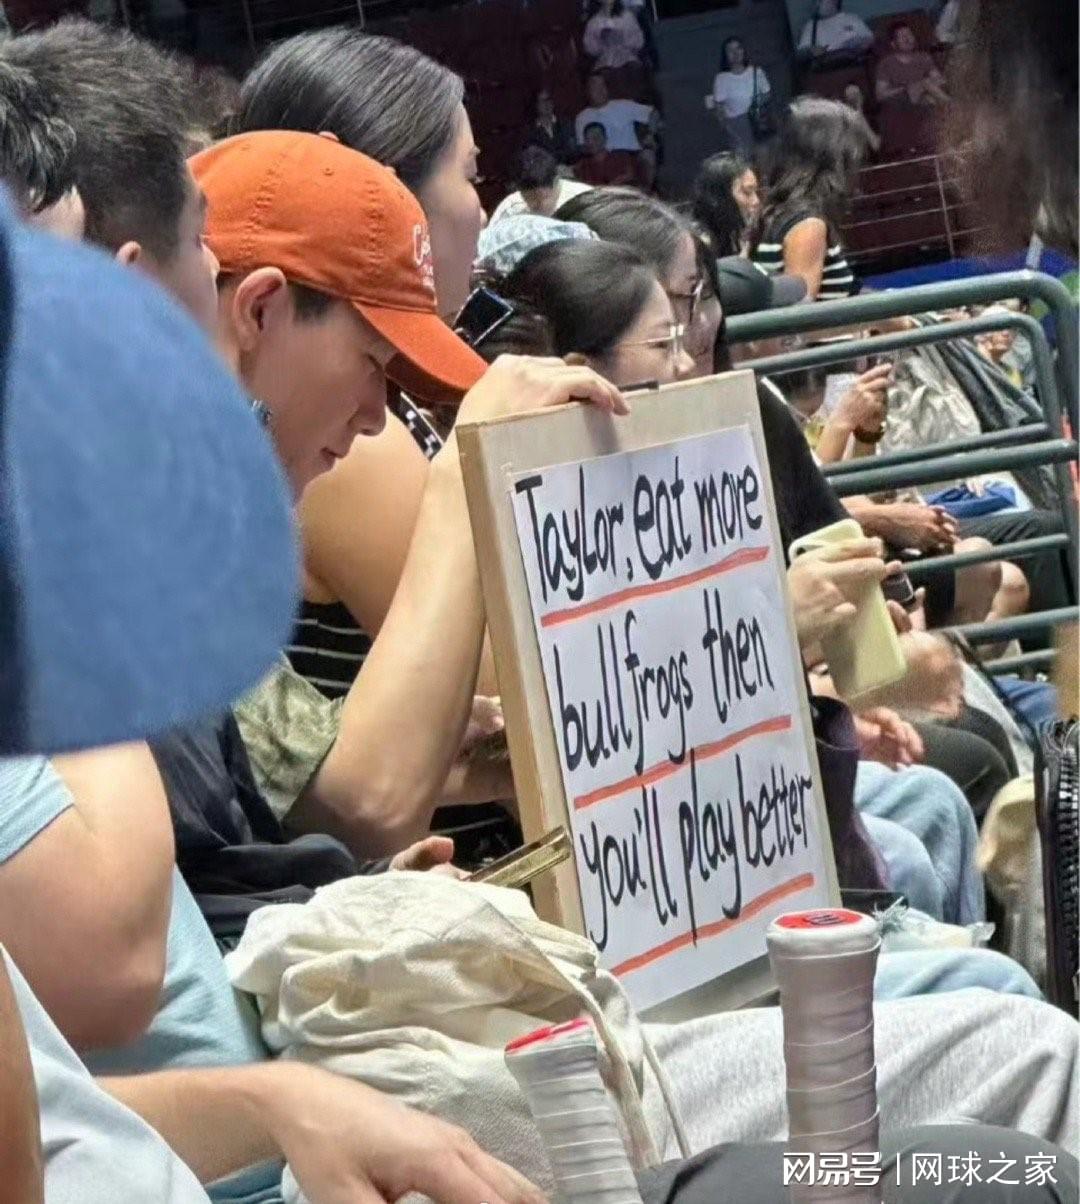 Taylor, eat more
bullfrogs then
you'll play better
网易号 | 网球之家